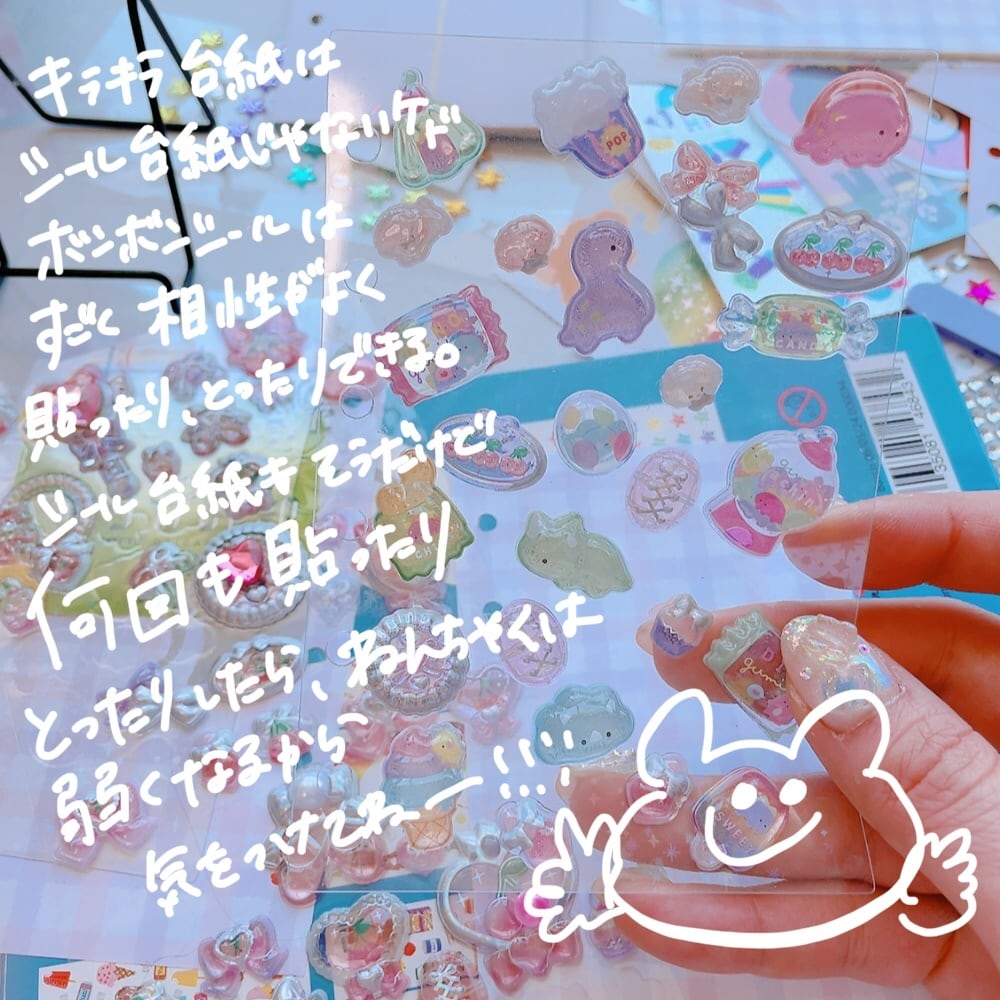 キラキラ台紙は
シール台紙じゃないケド
ボンボンシールは
すごく相性がよく
貼ったり、とったりできる。
シール台紙もそうだけど
何回も貼ったり
とったりしたら、ねんちゃくは
弱くなるから
気をつけてねー!!!
POP
CANDY
SWEET